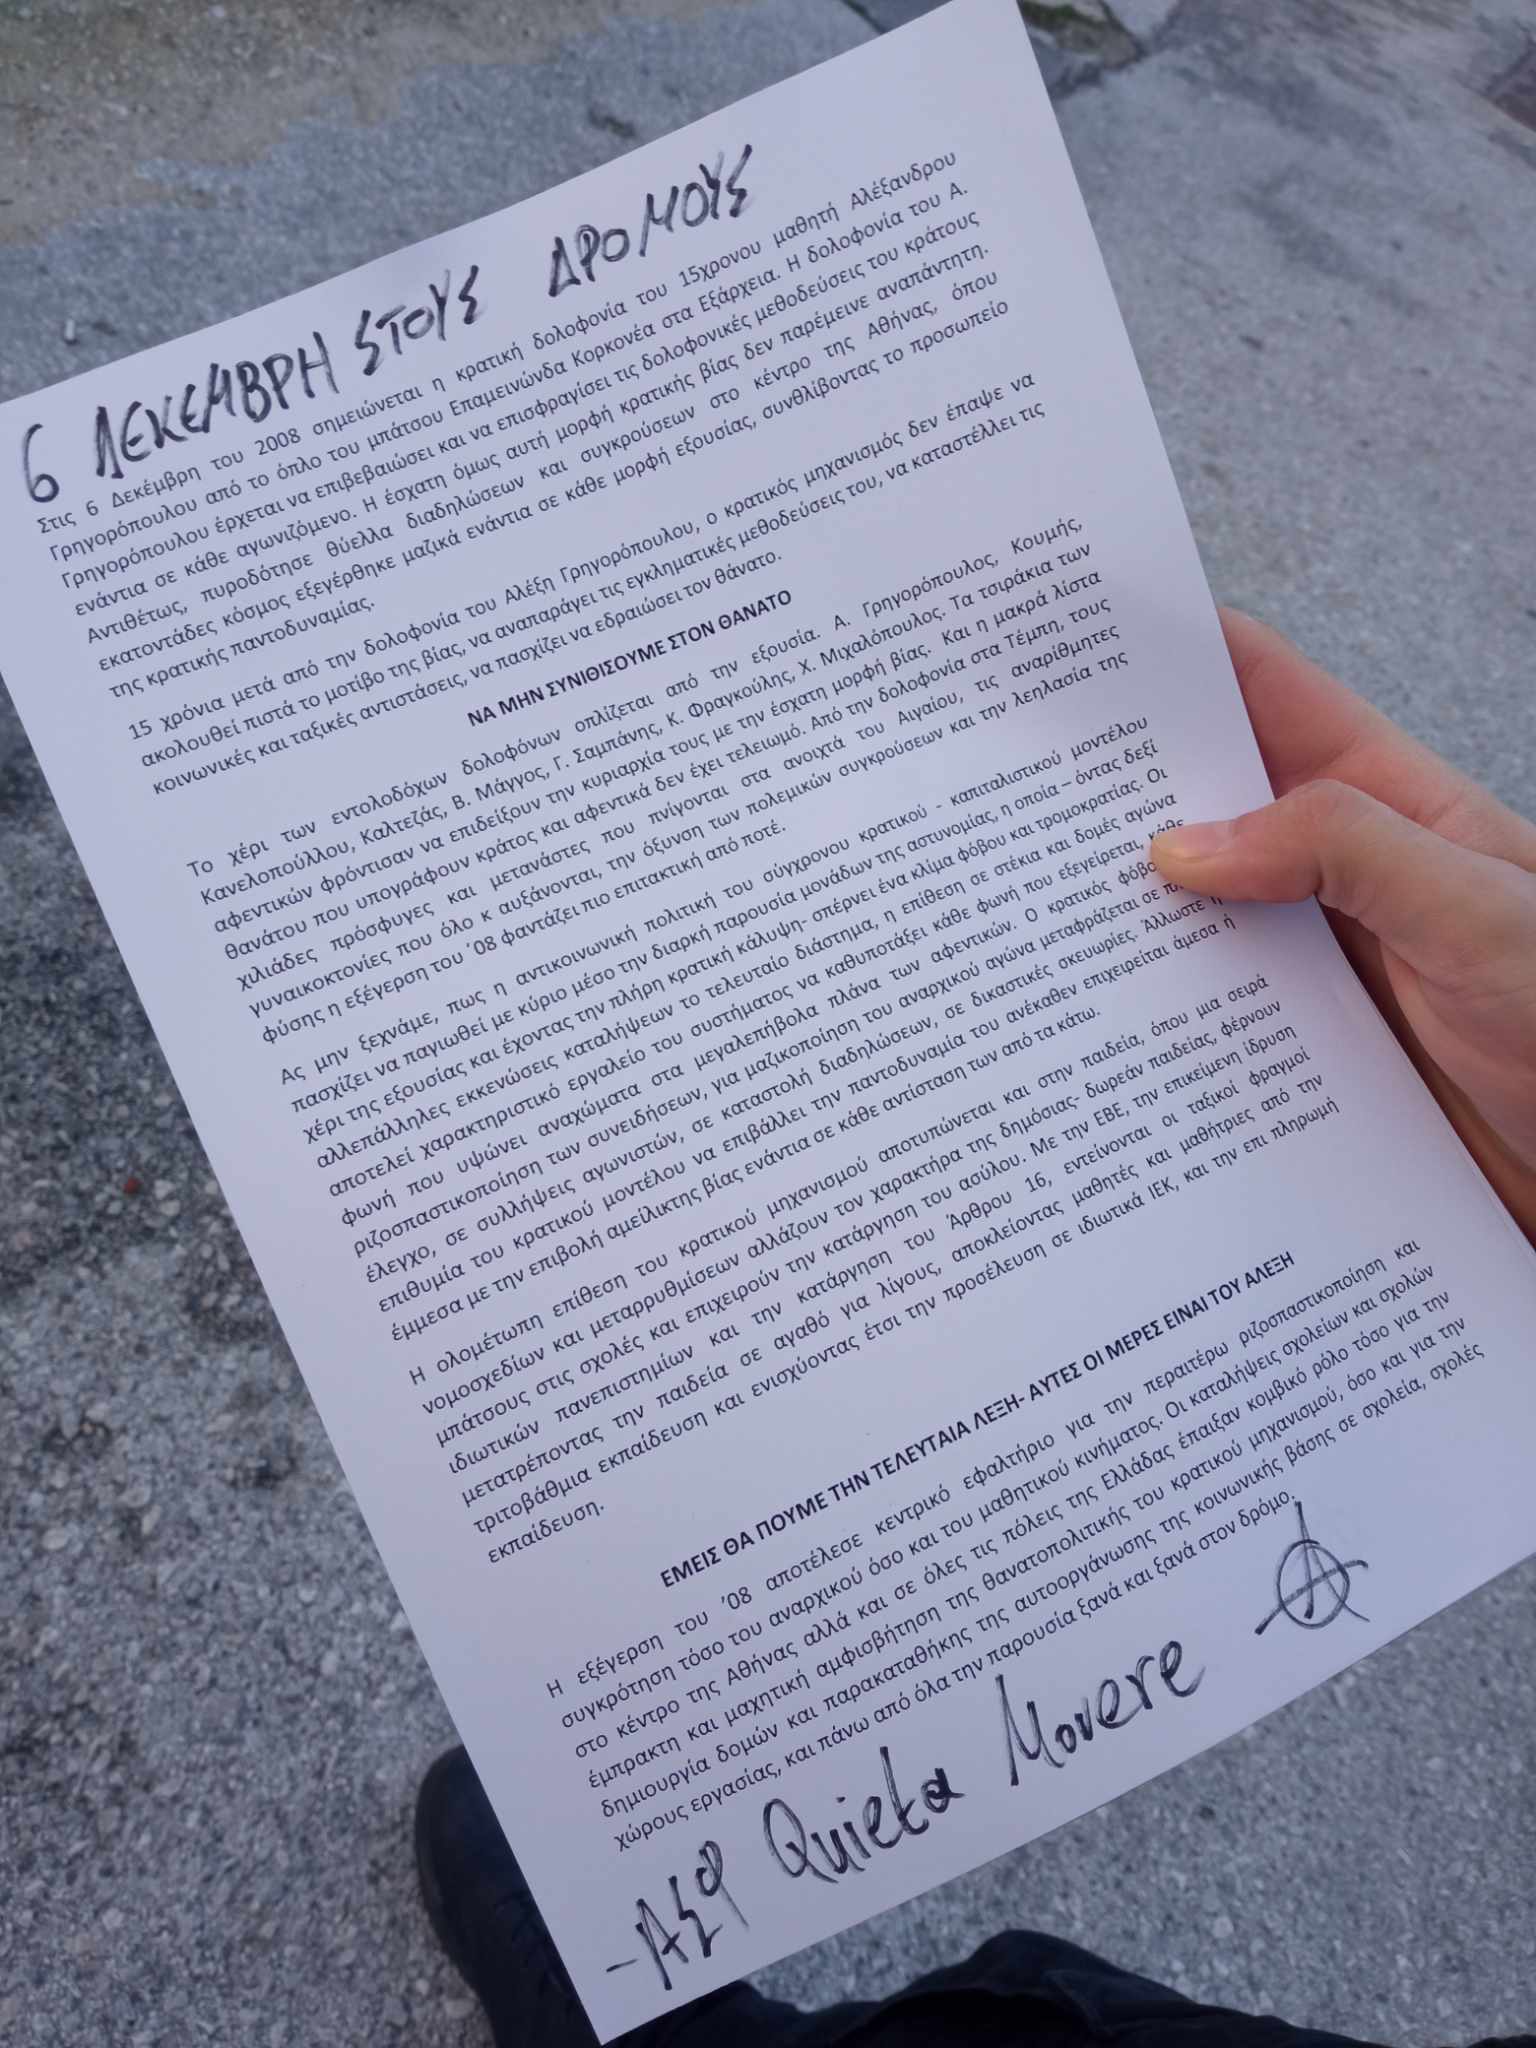 6 ΔΕΚΕΜΒΡΗ ΣΤΟΥΣ ΔΡΟΜΟΥΣ
Στις 6 Δεκέμβρη του 2008 σημειώνεται η κρατική δολοφονία του 15χρονου μαθητή Αλέξανδρου
Γρηγορόπουλου από το όπλο του μπάτσου Επαμεινώνδα Κορκονέα στα Εξάρχεια. Η δολοφονία του Α.
Γρηγορόπουλου έρχεται να επιβεβαιώσει και να επισφραγίσει τις δολοφονικές μεθοδεύσεις του κράτους
ενάντια σε κάθε αγωνιζόμενο. Η έσχατη όμως αυτή μορφή κρατικής βίας δεν παρέμεινε αναπάντητη.
Αντιθέτως, πυροδότησε θύελλα διαδηλώσεων και συγκρούσεων στο κέντρο της Αθήνας, όπου
εκατοντάδες κόσμος εξεγέρθηκε μαζικά ενάντια σε κάθε μορφή εξουσίας, συνθλίβοντας το προσωπείο
της κρατικής παντοδυναμίας.
15 χρόνια μετά από την δολοφονία του Αλέξη Γρηγορόπουλου, ο κρατικός μηχανισμός δεν έπαψε να
ακολουθεί πιστά το μοτίβο της βίας, να αναπαράγει τις εγκληματικές μεθοδεύσεις του, να καταστέλλει τις
κοινωνικές και ταξικές αντιστάσεις, να πασχίζει να εδραιώσει τον θάνατο.
ΝΑ ΜΗΝ ΣΥΝΙΘΙΣΟΥΜΕ ΣΤΟΝ ΘΑΝΑΤΟ
Το χέρι των εντολοδόχων δολοφόνων οπλίζεται από την εξουσία. Α. Γρηγορόπουλος, Κουμής,
Κανελοπούλλου, Καλτεζάς, Β. Μάγγος, Γ. Σαμπάνης, Κ. Φραγκούλης, Χ. Μιχαλόπουλος. Τα τσιράκια των
αφεντικών φρόντισαν να επιδείξουν την κυριαρχία τους με την έσχατη μορφή βίας. Και η μακρά λίστα
θανάτου που υπογράφουν κράτος και αφεντικά δεν έχει τελειωμό. Από την δολοφονία στα Τέμπη, τους
χιλιάδες πρόσφυγες και μετανάστες που πνίγονται στα ανοιχτά του Αιγαίου, τις αναρίθμητες
γυναικοκτονίες που όλο κ αυξάνονται, την όξυνση των πολεμικών συγκρούσεων και την λεηλασία της
φύσης η εξέγερση του ΄08 φαντάζει πιο επιτακτική από ποτέ.
Ας μην ξεχνάμε, πως η αντικοινωνική πολιτική του σύγχρονου κρατικού - καπιταλιστικού μοντέλου
πασχίζει να παγιωθεί με κύριο μέσο την διαρκή παρουσία μονάδων της αστυνομίας, η οποία – όντας δεξί
χέρι της εξουσίας και έχοντας την πλήρη κρατική κάλυψη- σπέρνει ένα κλίμα φόβου και τρομοκρατίας. Οι
αλλεπάλληλες εκκενώσεις καταλήψεων το τελευταίο διάστημα, η επίθεση σε στέκια και δομές αγώνα
αποτελεί χαρακτηριστικό εργαλείο του συστήματος να καθυποτάξει κάθε φωνή που εξεγείρεται, κάθε
φωνή που υψώνει αναχώματα στα μεγαλεπήβολα πλάνα των αφεντικών. Ο κρατικός φόβος
ριζοσπαστικοποίηση των συνειδήσεων, για μαζικοποίηση του αναρχικού αγώνα μεταφράζεται σε
έλεγχο, σε συλλήψεις αγωνιστών, σε καταστολή διαδηλώσεων, σε δικαστικές σκευωρίες. Άλλωστε η
επιθυμία του κρατικού μοντέλου να επιβάλλει την παντοδυναμία του ανέκαθεν επιχειρείται άμεσα ή
έμμεσα με την επιβολή αμείλικτης βίας ενάντια σε κάθε αντίσταση των από τα κάτω.
Η ολομέτωπη επίθεση του κρατικού μηχανισμού αποτυπώνεται και στην παιδεία, όπου μια σειρά
νομοσχεδίων και μεταρρυθμίσεων αλλάζουν τον χαρακτήρα της δημόσιας- δωρεάν παιδείας, φέρνουν
μπάτσους στις σχολές και επιχειρούν την κατάργηση του ασύλου. Με την ΕΒΕ, την επικείμενη ίδρυση
ιδιωτικών πανεπιστημίων και την κατάργηση του Άρθρου 16, εντείνονται οι ταξικοί φραγμοί
μετατρέποντας την παιδεία σε αγαθό για λίγους, αποκλείοντας μαθητές και μαθήτριες από την
τριτοβάθμια εκπαίδευση και ενισχύοντας έτσι την προσέλευση σε ιδιωτικά ΙΕΚ, και την επι πληρωμή
εκπαίδευση.
ΕΜΕΙΣ ΘΑ ΠΟΥΜΕ ΤΗΝ ΤΕΛΕΥΤΑΙΑ ΛΕΞΗ- ΑΥΤΕΣ ΟΙ ΜΕΡΕΣ ΕΙΝΑΙ ΤΟΥ ΑΛΕΞΗ
Η εξέγερση του ’08 αποτέλεσε κεντρικό εφαλτήριο για την περαιτέρω ριζοσπαστικοποίηση και
συγκρότηση τόσο του αναρχικού όσο και του μαθητικού κινήματος. Οι καταλήψεις σχολείων και σχολών
στο κέντρο της Αθήνας αλλά και σε όλες τις πόλεις της Ελλάδας έπαιξαν κομβικό ρόλο τόσο για την
έμπρακτη και μαχητική αμφισβήτηση της θανατοπολιτικής του κρατικού μηχανισμού, όσο και για την
δημιουργία δομών και παρακαταθήκης της αυτοοργάνωσης της κοινωνικής βάσης σε σχολεία, σχολές
χώρους εργασίας, και πάνω από όλα την παρουσία ξανά και ξανά στον δρόμο.
-ΑΣΦ Quieta Movere Ⓐ